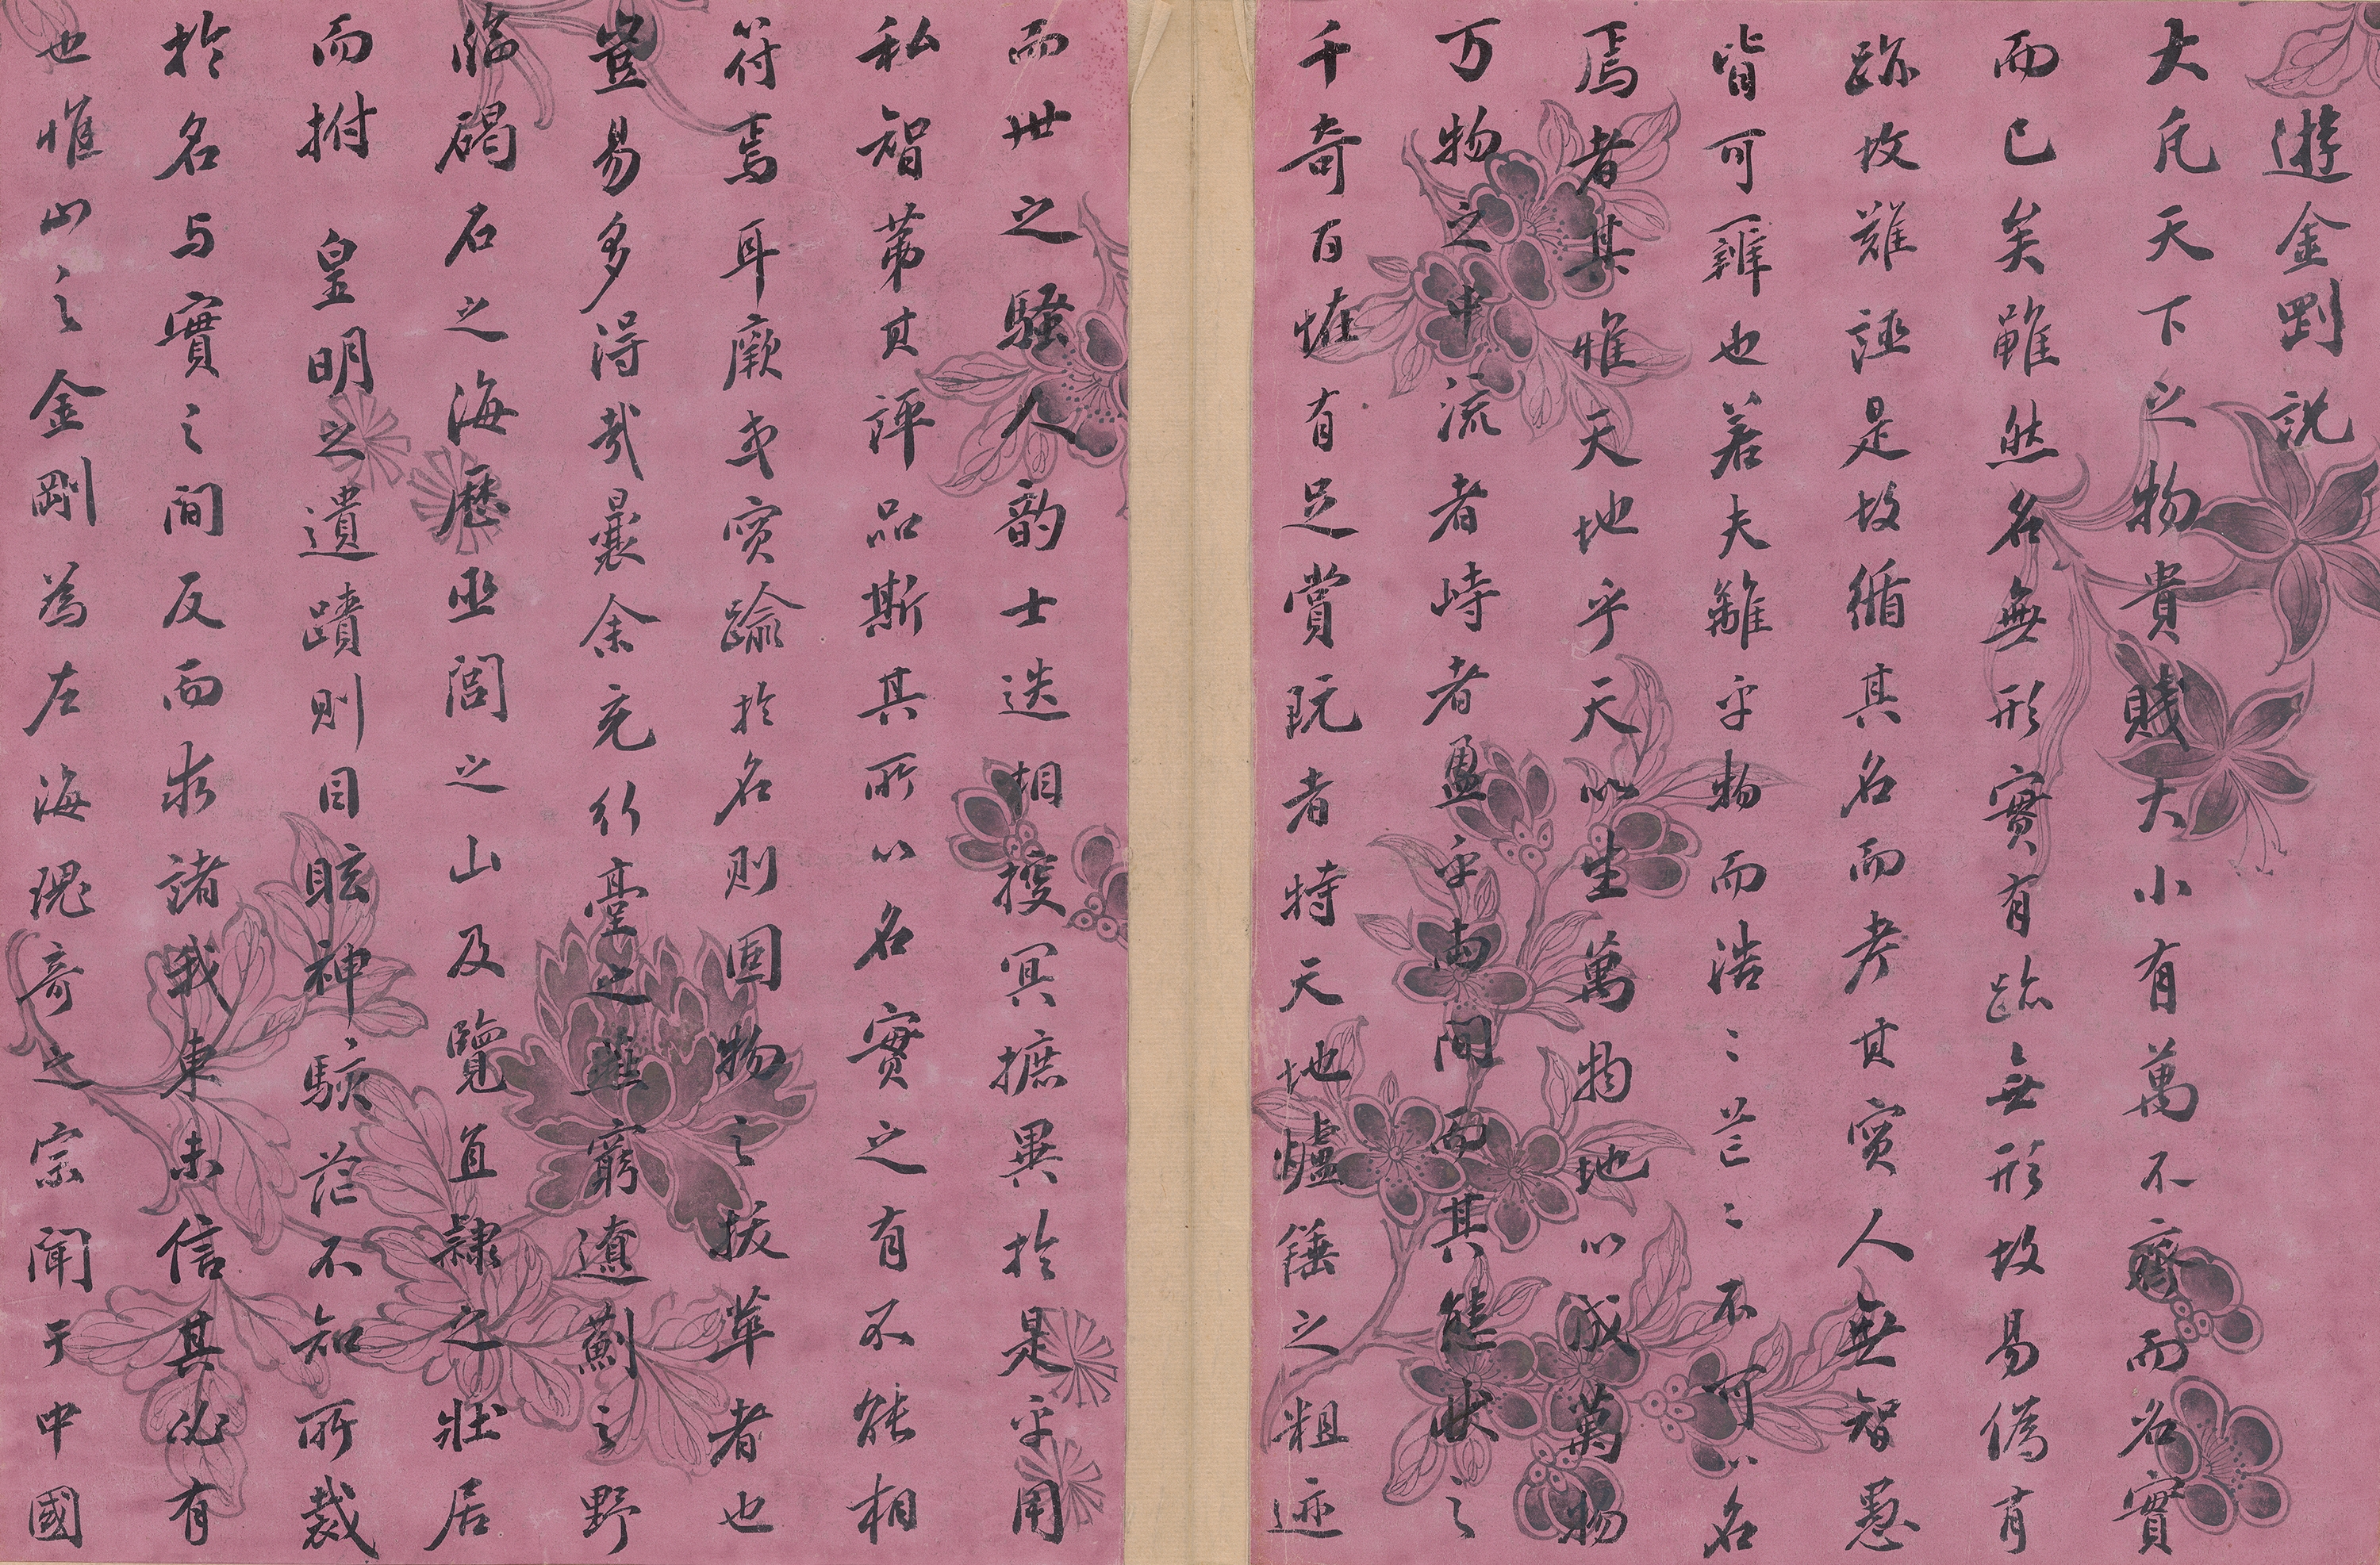 遊金剛說
大凡天下之物貴賤大小有萬不齊而名實
而已矣雖然名無形實有跡無形故易偽有
跡故難誣是故循其名而考其實人無智愚
皆可辨也若夫離乎物而浩〻茫〻不可以名
焉者其惟天地乎天以生萬物地以成萬物
万物之中流者峙者盈乎兩間而其態狀之
千奇百恠有足賞玩者特天地爐錘之粗迹
而世之騷人韵士迭相搜冥摭異於是乎用
私智第其評品斯其所以名實之有不能相
符焉耳厥或實踰於名則固物之拔萃者也
豈易多得哉曩余充行臺之 窮遼薊之野
臨碣石之海歷巫閭之山及覽直隷之壯居
而拊 皇明之遺蹟則目眩神駭茫不知所裁
於名与實之間反而求諸我東未信其必有
也惟山之金剛為左海瑰奇之宗聞于中國